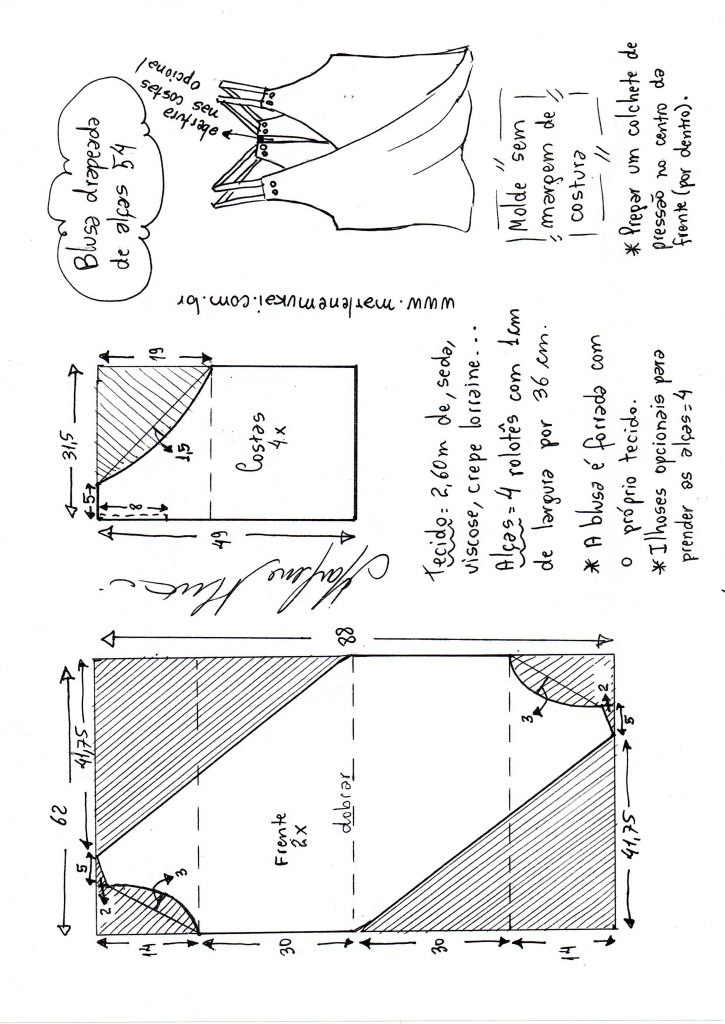 Blusa drapeada
de alças 54
abertura
nas costas
opcional
Molde sem
margem de
costura
* Pregar um colchete de
pressão no centro da
frente (por dentro).
www.marlenemukai.com.br
31,5
5
19
8
1,5
Costas
4x
49
Tecido = 2,60m de, seda,
viscose, crepe lorraine...
Alças = 4 rolotês com 1cm
de largura por 36 cm.
* A blusa é forrada com
o próprio tecido.
* Ilhoses opcionais para
prender as alças = 4
Marlene Mukai
62
41,75
5
2
3
88
Frente
2x
dobrar
3
2
5
41,75
14
30
30
14